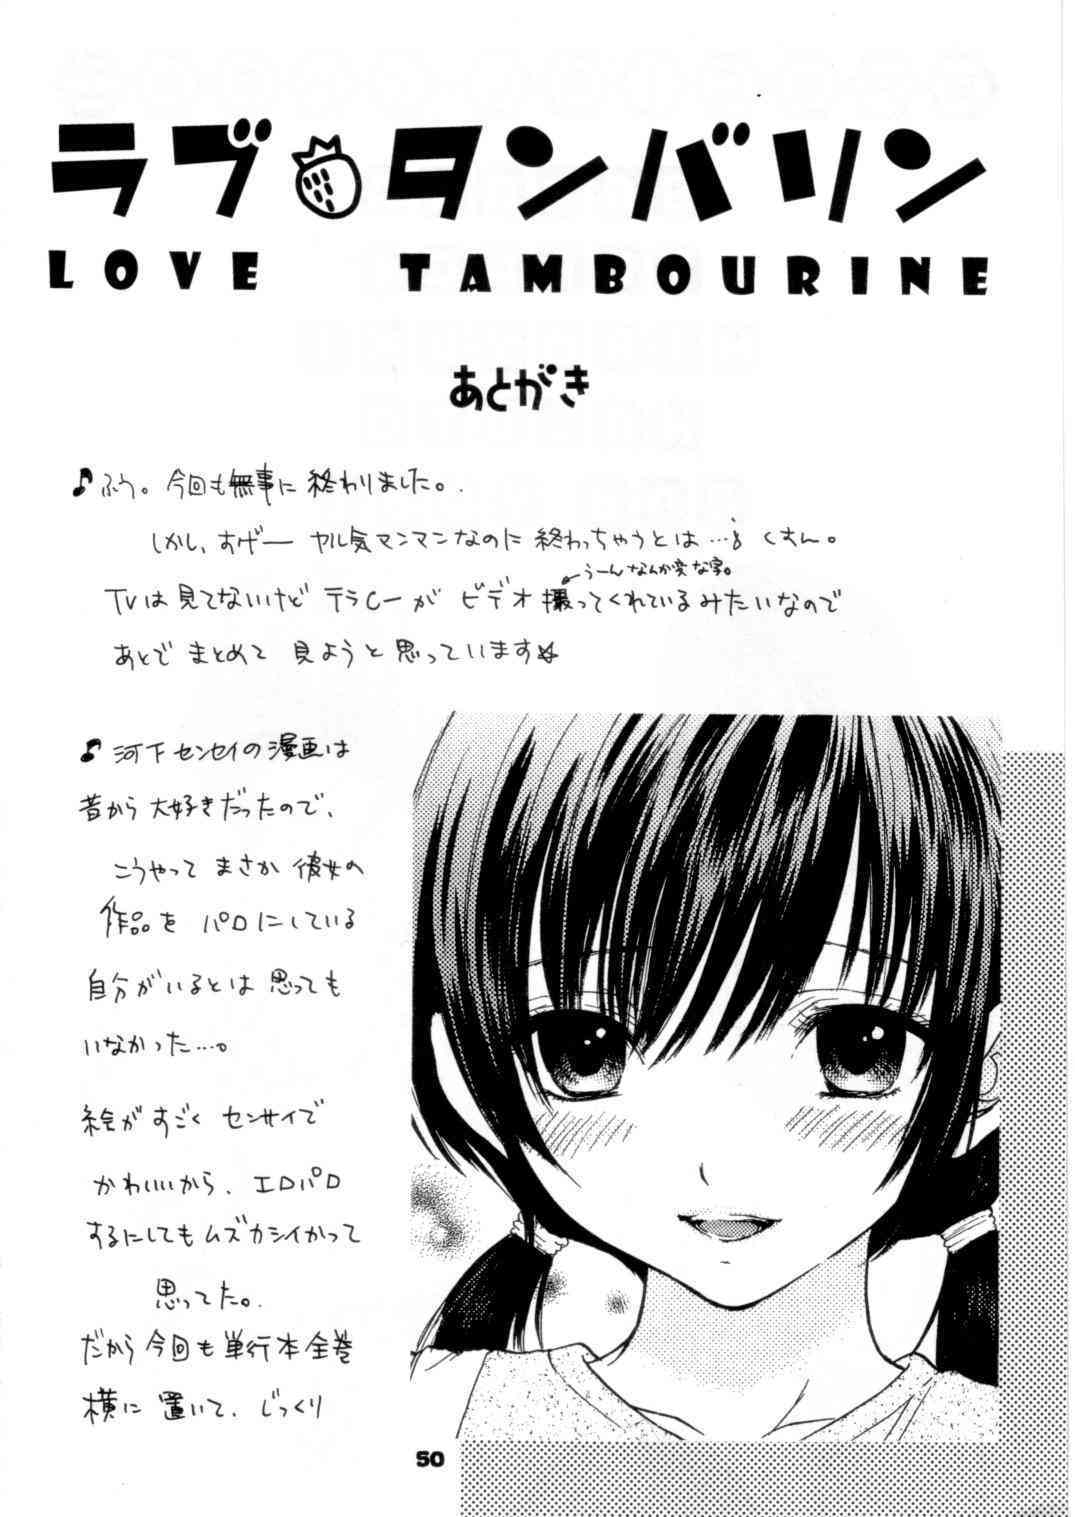 ラブ・タンバリン
LOVE TAMBOURINE
あとがき
♪ふう。今回も無事に終わりました。
しかし、すげー ヤル気マンマンなのに終わっちゃうとは…
うーんなんか変な字。
TVは見てないけど テラCーが ビデオ撮ってくれているみたいなので
あとで まとめて 見ようと思っています☆
♪河下センセイの漫画は
昔から大好きだったので、
こうやって まさか 彼女の
作品を パロにしている
自分がいるとは思っても
いなかった…。
絵が すごく センサイで
かわいいから、エロパロ
するにしてもムズカシイかって
思ってた。
だから今回も単行本全巻
横に置いて、じっくり
50